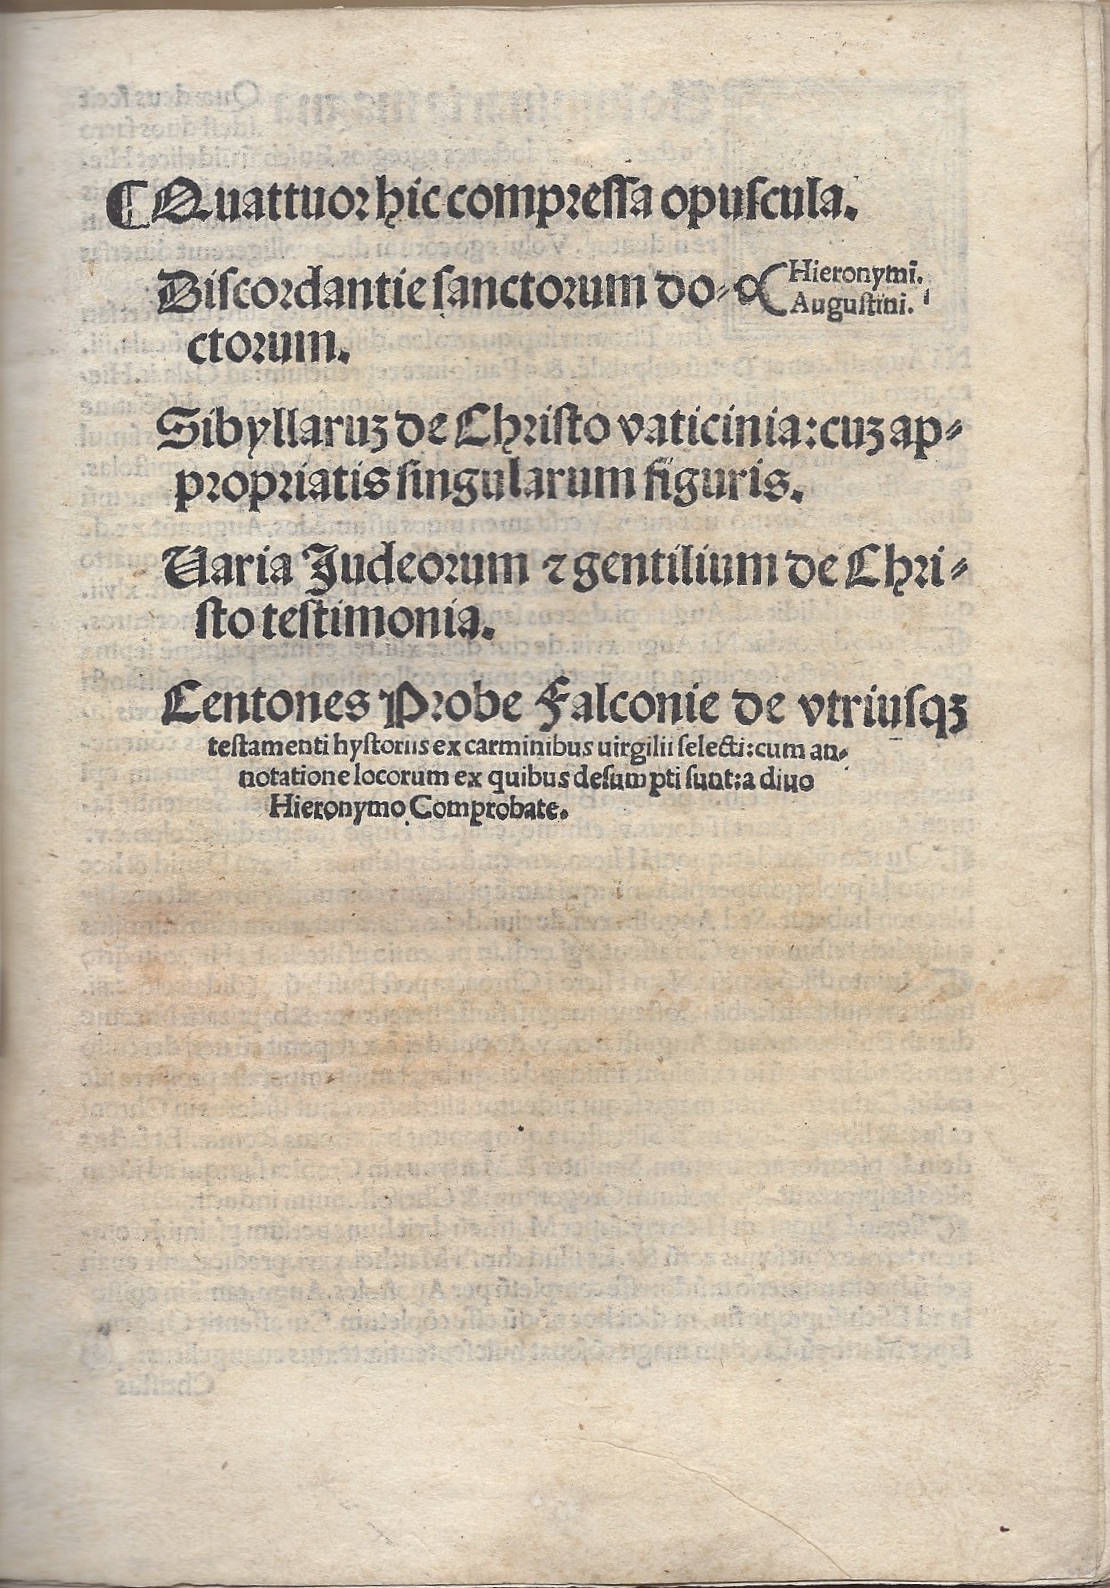 ¶ Quattuor hic compressa opuscula.
Discordantie sanctorum do-
ctorum.
Hieronymi.
Augustini.
Sibyllaruꝫ de Christo vaticinia: cuꝫ ap-
propriatis singularum figuris.
Uaria Judeorum ⁊ gentilium de Chri-
sto testimonia.
Centones Probe Falconie de vtriusqꝫ
testamenti hystoriis ex carminibus uirgilii selecti: cum an-
notatione locorum ex quibus desumpti sunt: a diuo
Hieronymo Comprobate.